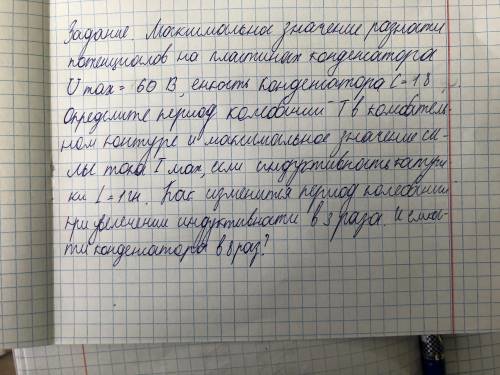 Задание. Максимальное значение разности
потенциалов на пластинах конденсатора
U max = 60 В, емкость конденсатора C = 18
Определите период колебаний T в колебатель-
ном контуре и максимальное значение си-
лы тока I max, если индуктивность катуш-
ки L = 1 гн. Как изменится период колебаний
при увелчении индуктивности в 3 раза. И емкос-
ти конденсатора в 8 раз?